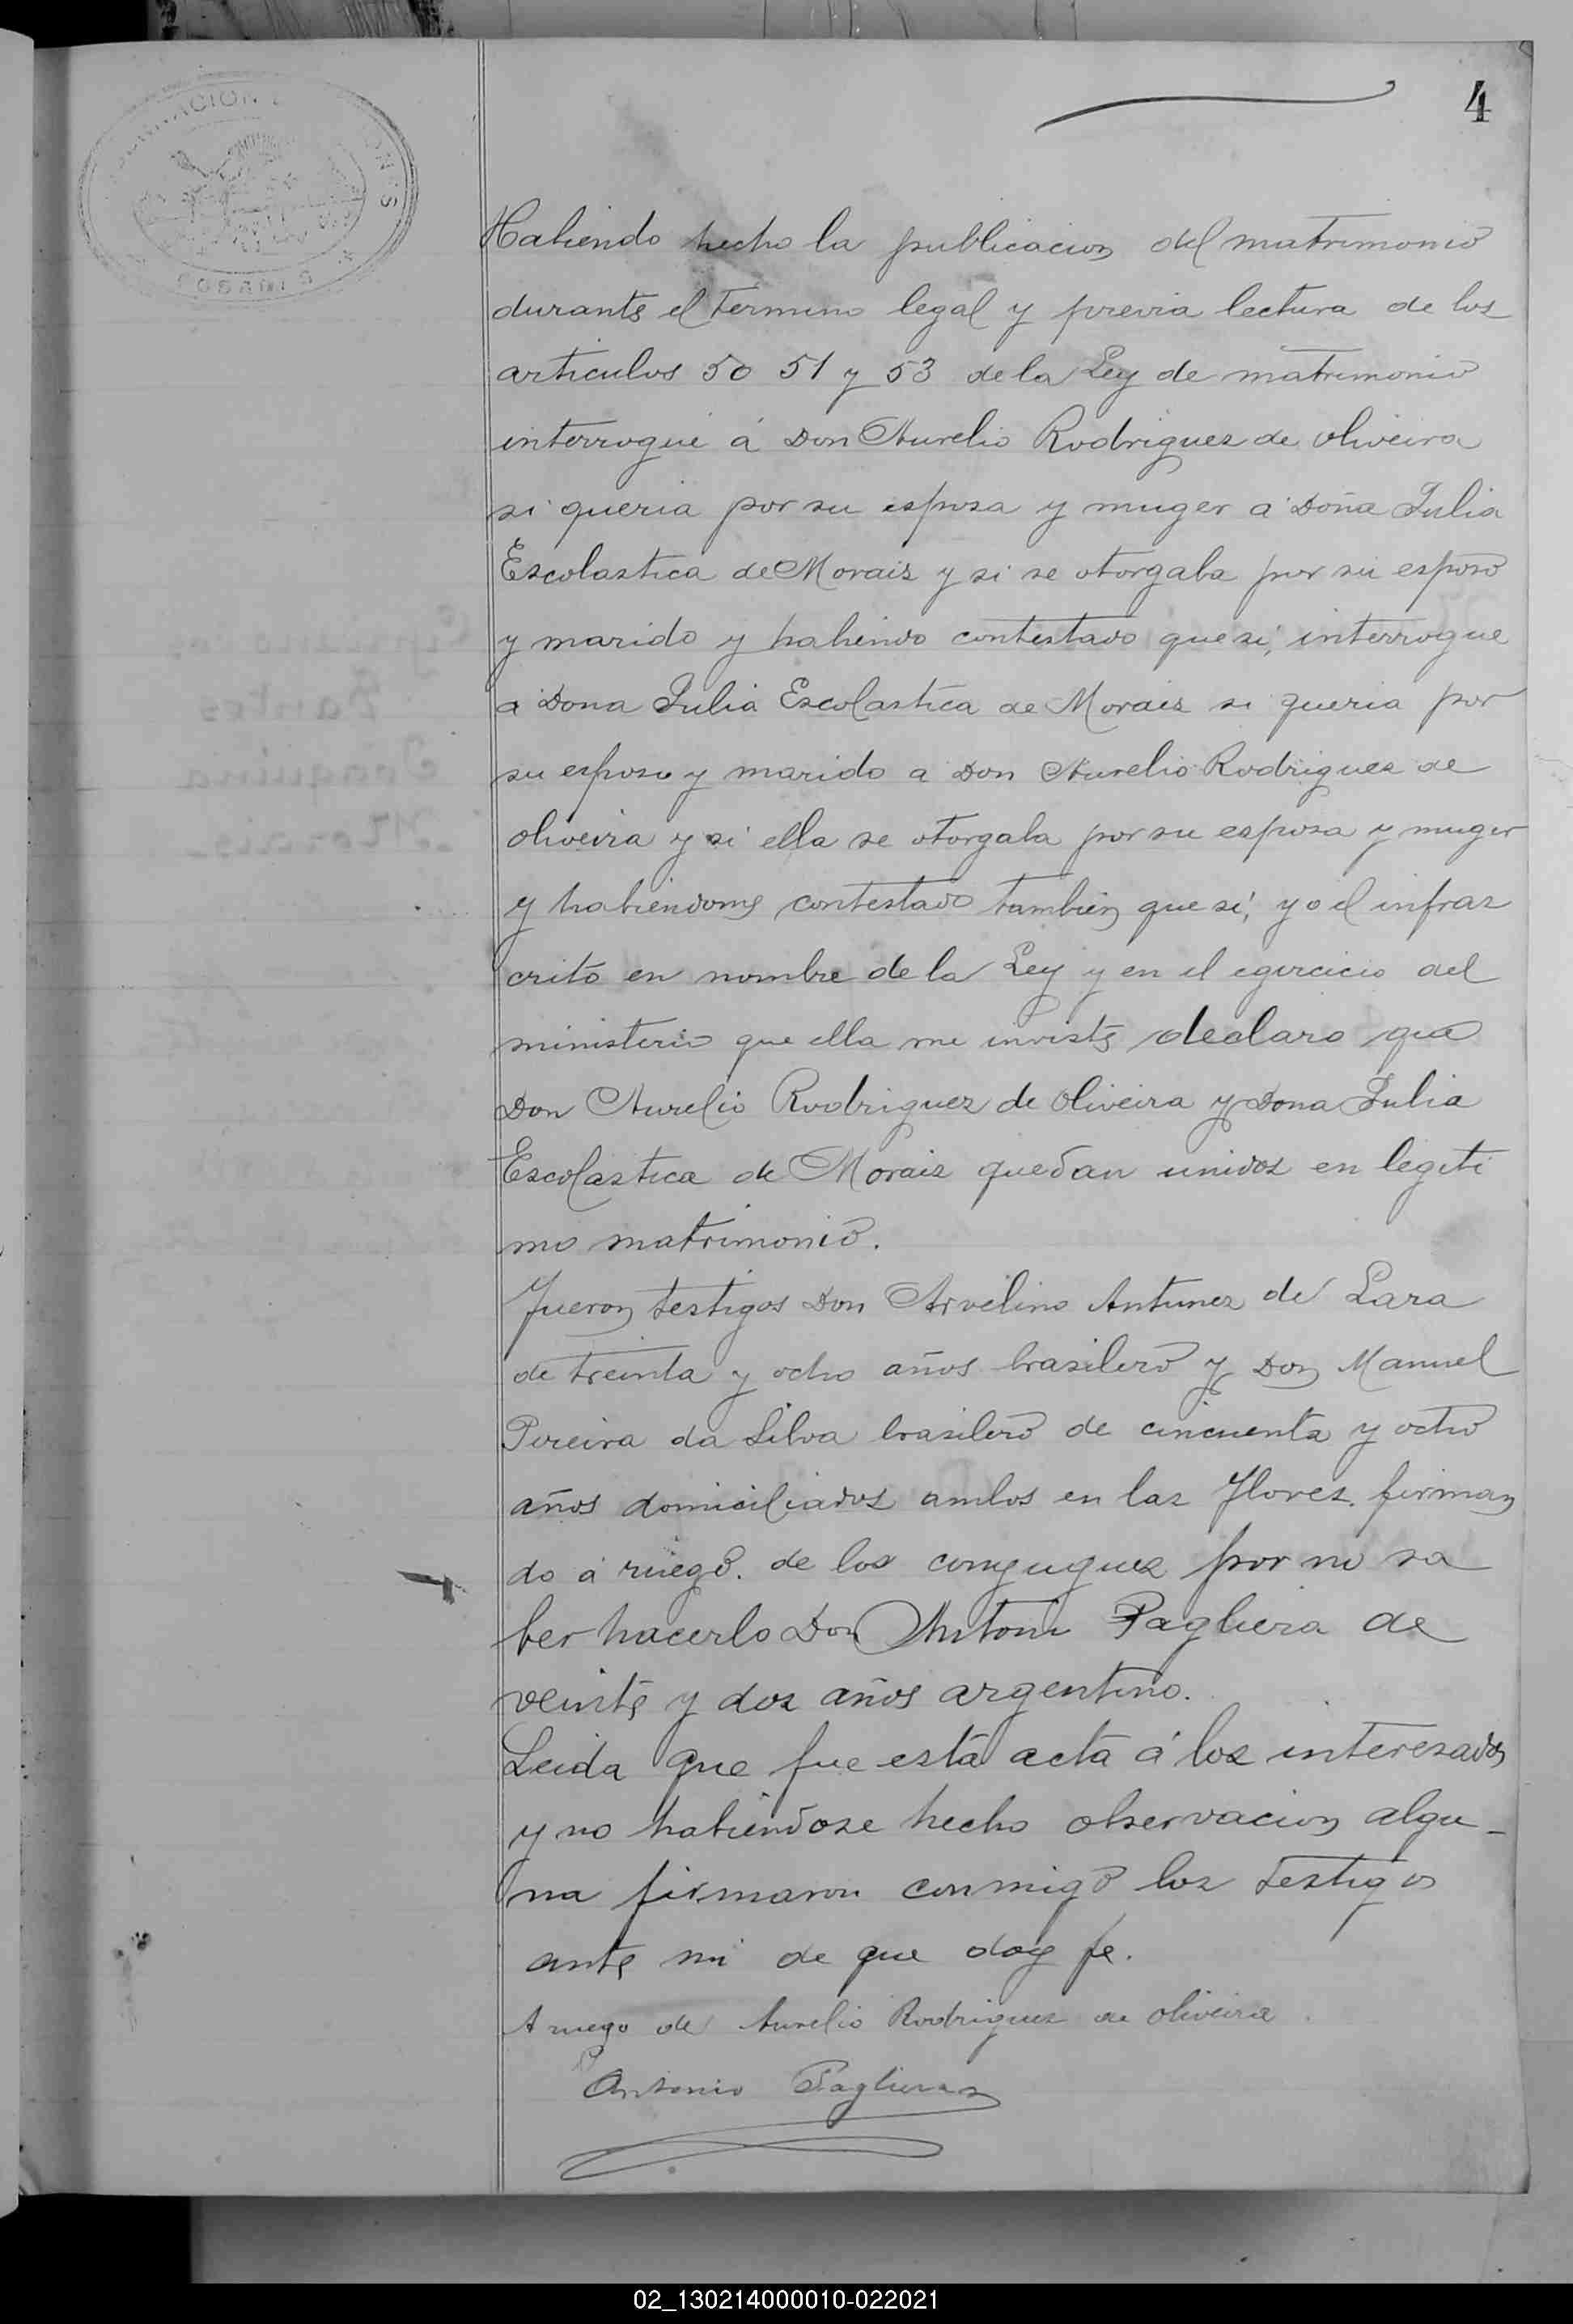 4
Habiendo hecho la publicacion del matrimonio
durante el termino legal y previa lectura de los
articulos 50 51 y 53 de la Ley de matrimonio
interrogué á Don Aurelio Rodriguez de Oliveira
si queria por su esposa y muger a Doña Julia
Escolastica de Morais y si se otorgaba por su esposo
y marido y habiendo contestado que si, interrogue
a Dona Julia Escolastica de Morais si queria por
su esposo y marido a Don Aurelio Rodriguez de
Oliveira y si ella se otorgaba por su esposa y muger
y habiendome contestado tambien que si, yo el infras
crito en nombre de la Ley y en el egercicio del
ministerio que ella me inviste declaro que
Don Aurelio Rodriguez de Oliveira y Dona Julia
Escolastica de Morais quedan unidos en legiti
mo matrimonio.
Fueron testigos Don Arvelino Antunez de Lara
de treinta y ocho años brasilero y Don Manuel
Pereira da Silva brasilero de cincuenta y ocho
años domiciliados ambos en las Flores. firman
do á ruego. de los conyugues por no sa
ber hacerlo Don Antonio Pagliera de
veinte y dos años argentino.
Leida que fue esta acta á los interesados
y no habiendose hecho observacion algu-
na firmaron conmigo los testigos
ante mi de que doy fe.
A ruego de Aurelio Rodriguez de Oliveira
Antonio Pagliera
POSADAS
02_130214000010-022021